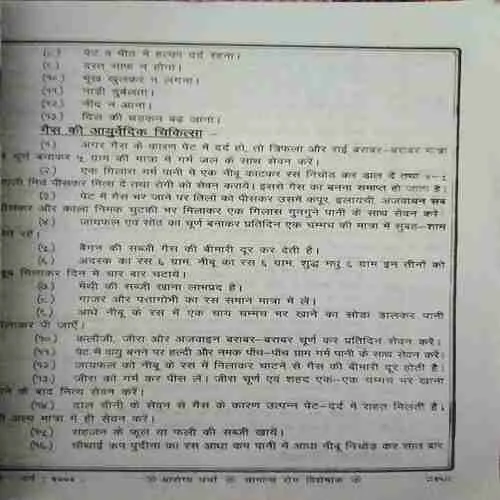 (८) पेट व पीठ में हल्का दर्द रहना।
(९) दस्त साफ न होना।
(१०) भूख खुलकर न लगना।
(११) नाड़ी दुर्बलता।
(१२) नींद न आना।
(१३) दिल की धड़कन बढ़ जाना।
गैस की आयुर्वेदिक चिकित्सा -
(१) अगर गैस के कारण पेट में दर्द हो, तो त्रिफला और राई बराबर-बराबर मात्रा
चूर्ण बनाकर ५ ग्राम की मात्रा में गर्म जल के साथ सेवन करें।
(२) एक गिलास गर्म पानी में एक नींबू काटकर रस निचोड़ कर डाल दें तथा ४-५
मिर्च पीसकर मिला दें तथा रोगी को सेवन करायें। इससे गैस का बनना समाप्त हो जाता है।
(३) पेट में गैस भर जाने पर तिलों को पीसकर उसमें कपूर, इलायची, अजवायन सब
पीसकर और काला निमक चुटकी भर मिलाकर एक गिलास गुनगुने पानी के साथ सेवन करें।
(४) जायफल एवं सोंठ का चूर्ण बनाकर प्रतिदिन एक चम्मच की मात्रा में सुबह-शाम
रहें।
(५) बैंगन की सब्जी गैस की बीमारी दूर कर देती है।
(६) अदरक का रस ६ ग्राम, नींबू का रस ६ ग्राम, शुद्ध मधु ६ ग्राम इन तीनों को
मिलाकर दिन में चार बार चटायें।
(७) मेथी की सब्जी खाना लाभप्रद है।
(८) गाजर और पत्तागोभी का रस समान मात्रा में लें।
(९) आधे नींबू के रस में एक चाय चम्मच भर खाने का सोडा डालकर पानी
मिलाकर पी जाएँ।
(१०) कलौंजी, जीरा और अजवाइन बराबर-बराबर चूर्ण कर प्रतिदिन सेवन करें।
(११) पेट में वायु बनने पर हल्दी और नमक पाँच-पाँच ग्राम गर्म पानी के साथ सेवन करें।
(१२) जायफल को नींबू के रस में निकालकर चाटने से गैस की बीमारी दूर होती है।
(१३) जीरा को गर्म कर पीस लें। जीरा चूर्ण एवं शहद एक-एक चम्मच भर खाना
के बाद नित्य सेवन करें।
(१४) दाल चीनी के सेवन से गैस के कारण उत्पन्न पेट-दर्द में राहत मिलती है।
अल्प मात्रा में ही सेवन करें।
(१५) सहजन के फूल या फली की सब्जी खायें।
(१६) चौथाई कप पुदीना का रस आधा कप पानी में आधा नींबू निचोड़ कर सात बार
आरोग्य चर्चा के सामान्य रोग विशेषांक के